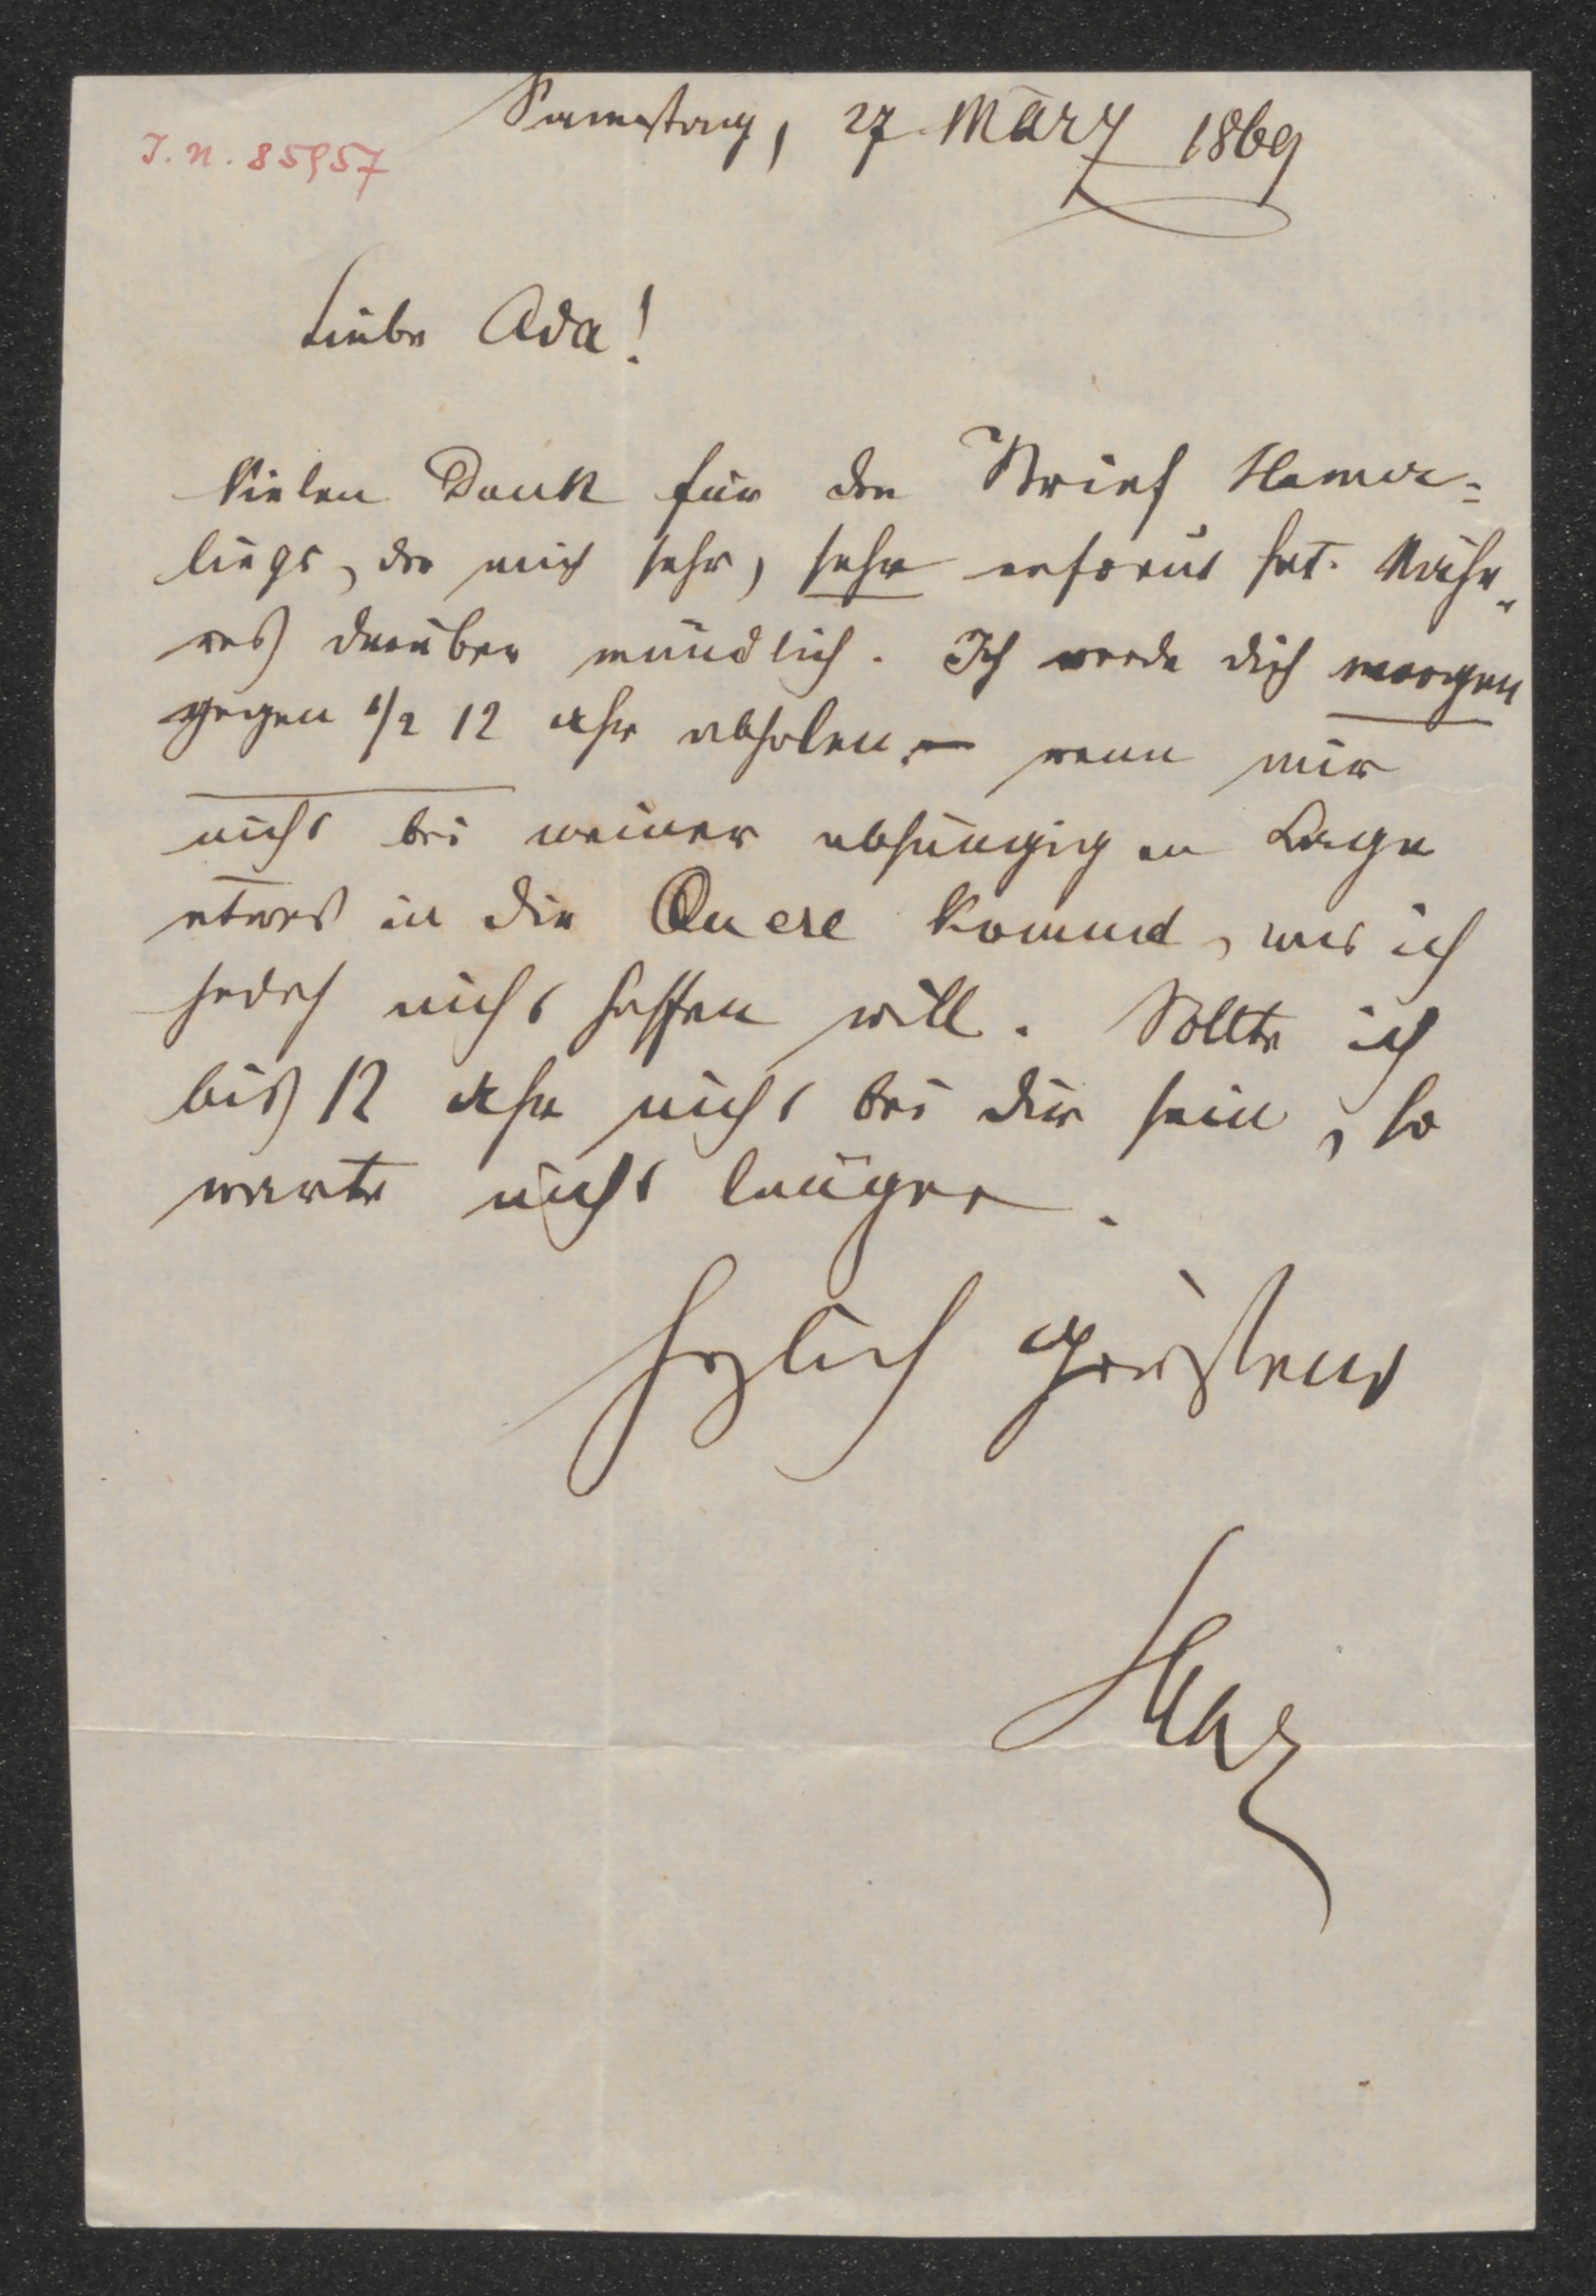 Samstag, 27 März 1869
I.N. 85957
Liebe Ada!
Vielen Dank für den Brief Hamer-
lings, der mich sehr, sehr erfreut hat. Nähe-
res darüber mündlich. Ich werde dich morgen
gegen 1/2 12 Uhr abholen – wenn mir
nicht bei meiner abhängigen Lage
etwas in die Quere kommt, was ich
jedoch nicht hoffen will. Sollte ich
bis 12 Uhr nicht bei dir sein, so
warte nicht länger.
Herzlich grüßend